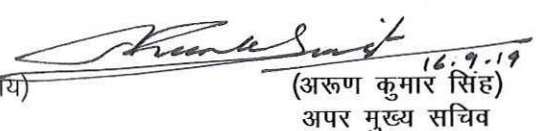 16.9.19
य)
(अरूण कुमार सिंह)
अपर मुख्य सचिव